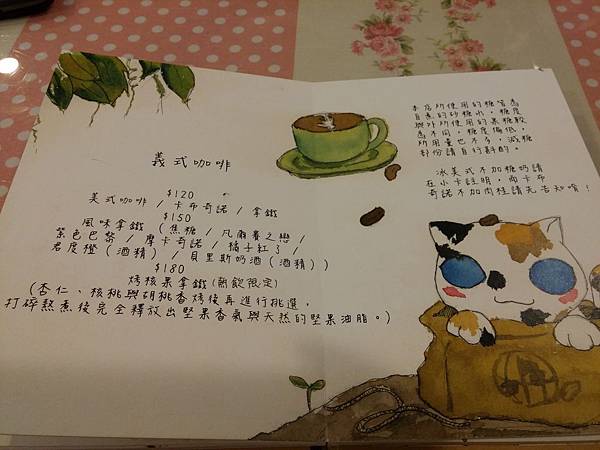 義式咖啡
$120
美式咖啡 / 卡布奇諾 / 拿鐵
$150
風味拿鐵 (焦糖 / 凡爾賽之戀 /
紫色巴黎 / 摩卡奇諾 / 橘士紅了 /
君度橙 (酒精) / 貝里斯奶酒 (酒精) )
$180
烤核果拿鐵 (熱飲限定)
(杏仁、核桃與胡桃香烤後再進行挑選,
打碎熬煮後完全釋放出堅果香氣與天然的堅果油脂。)
本店所使用的糖皆為
自煮的砂糖水,糖度
與外所使用的果糖較
為不同,糖度偏低,
所用量也不多,減糖
部份請自行斟酌。
冰美式不加糖奶請
在小卡註明,而卡布
奇諾不加肉桂請先告知唷!